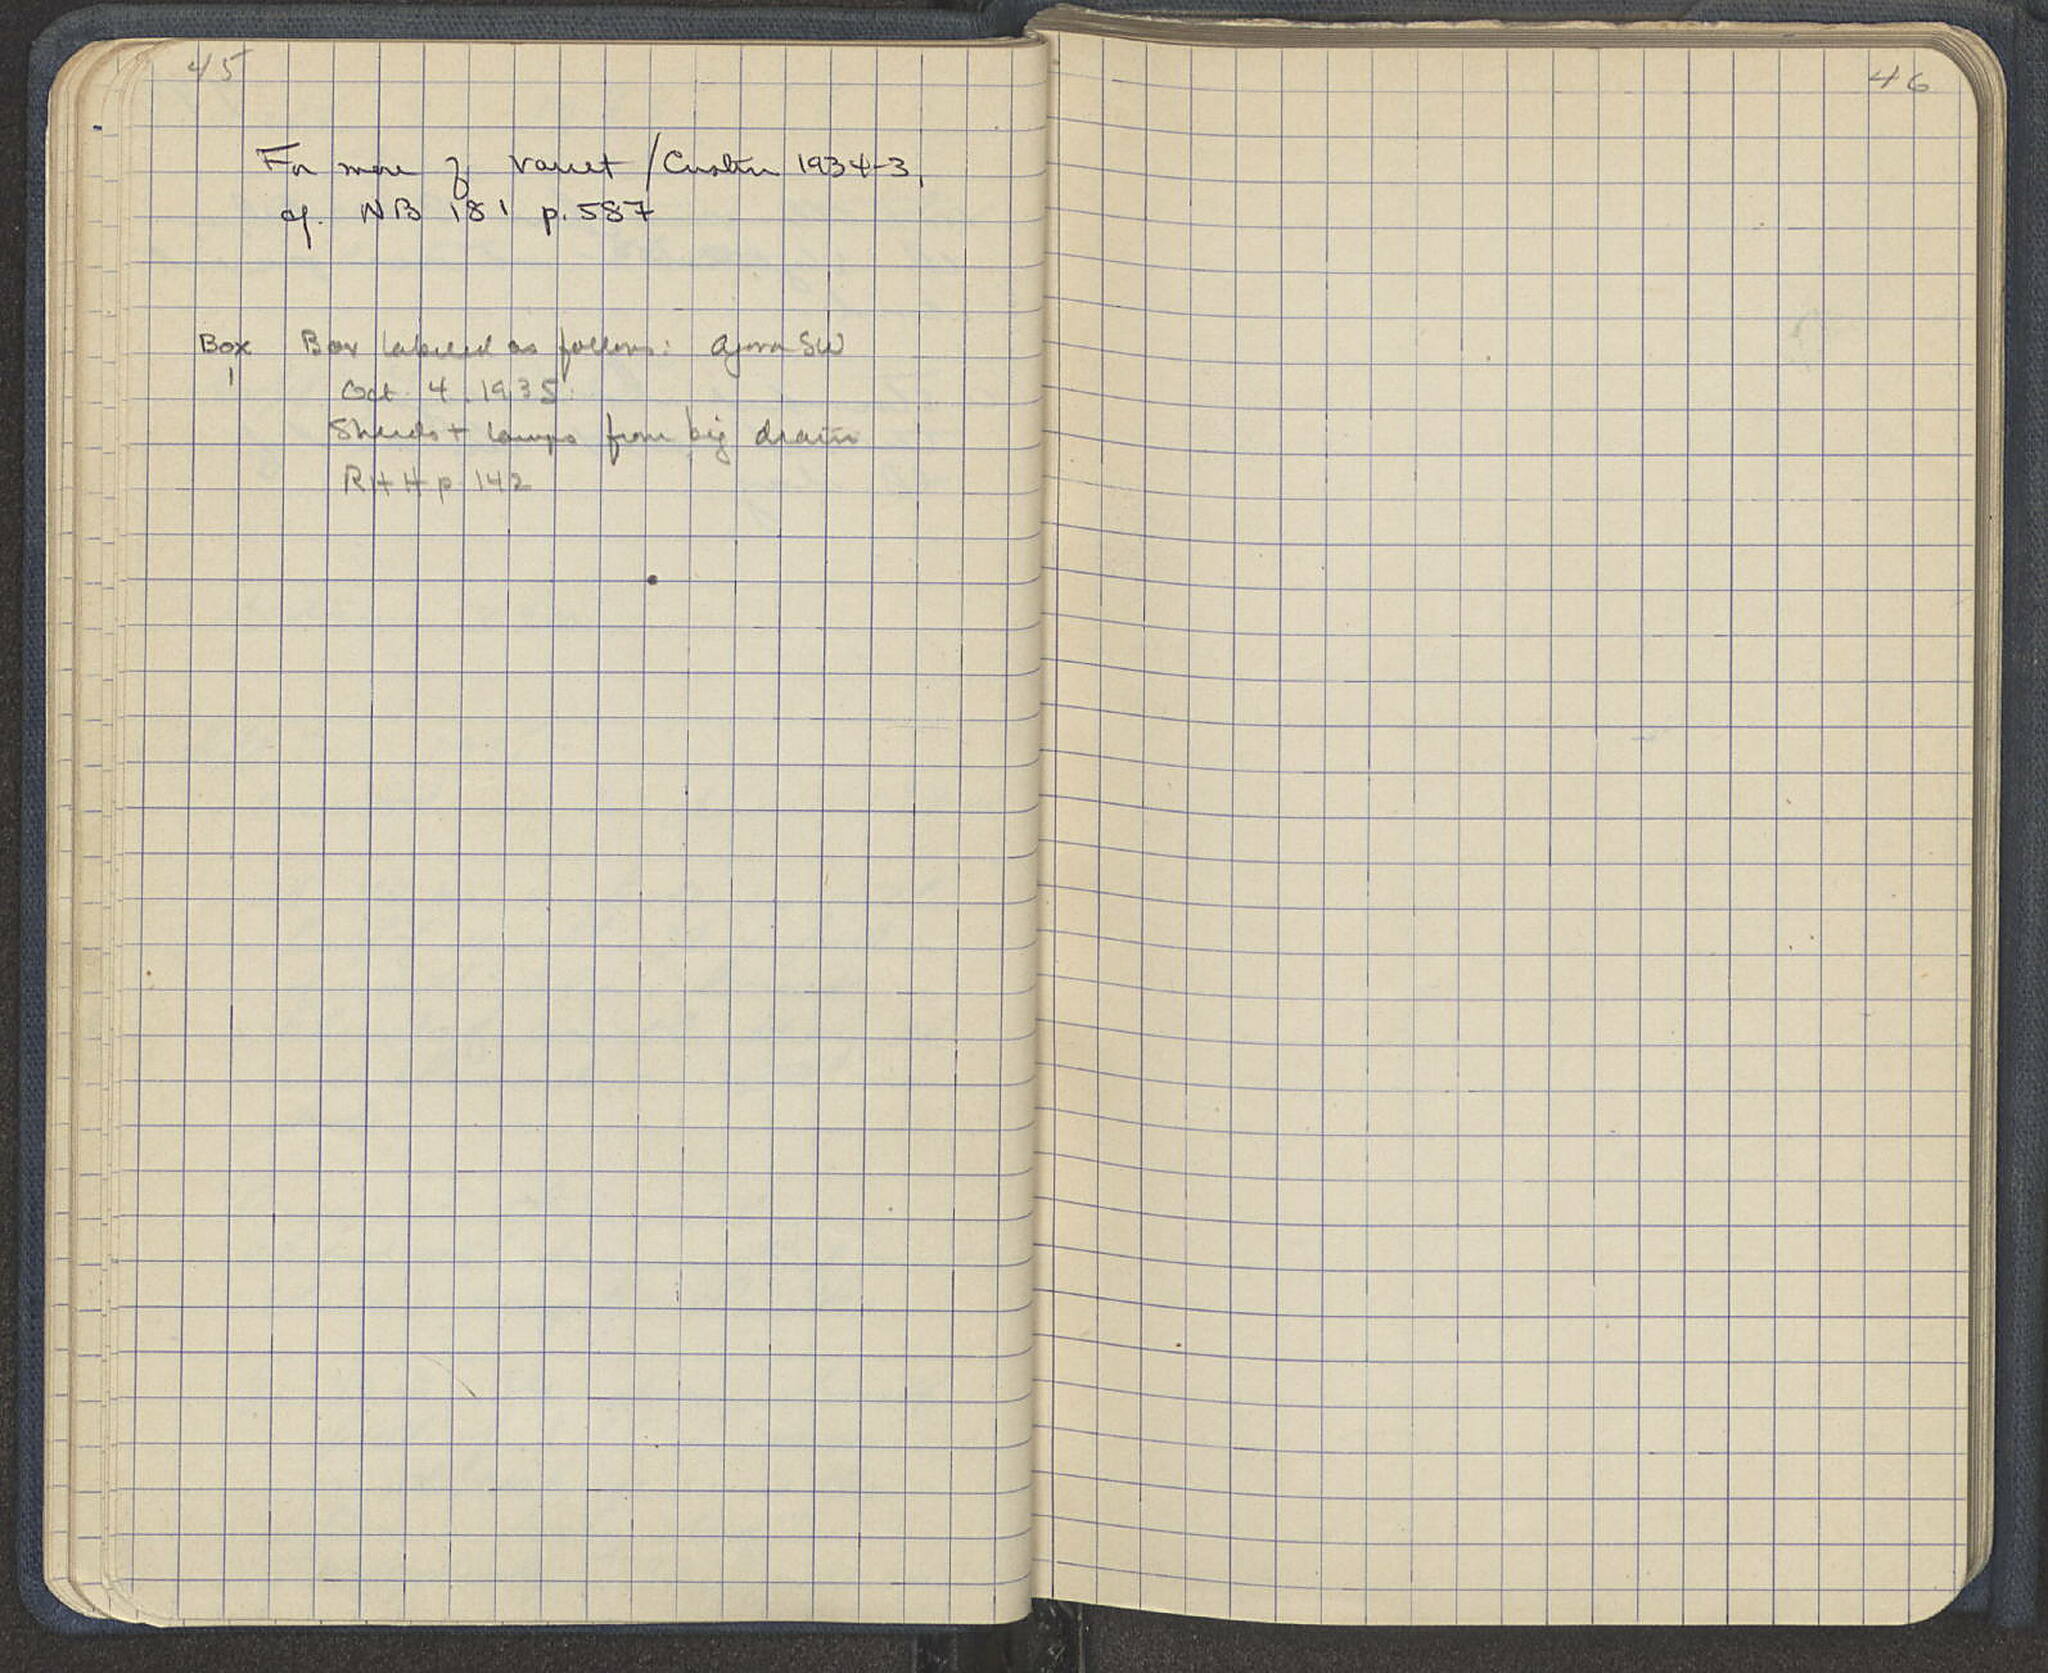 45
For more of Vanet / Cistern 1934-3,
cf. NB 181 p. 587
Box Box labeled as follows: Agora SW
1
Oct. 4. 1935.
Sherds + lamps from big drain
RHH p 142
46